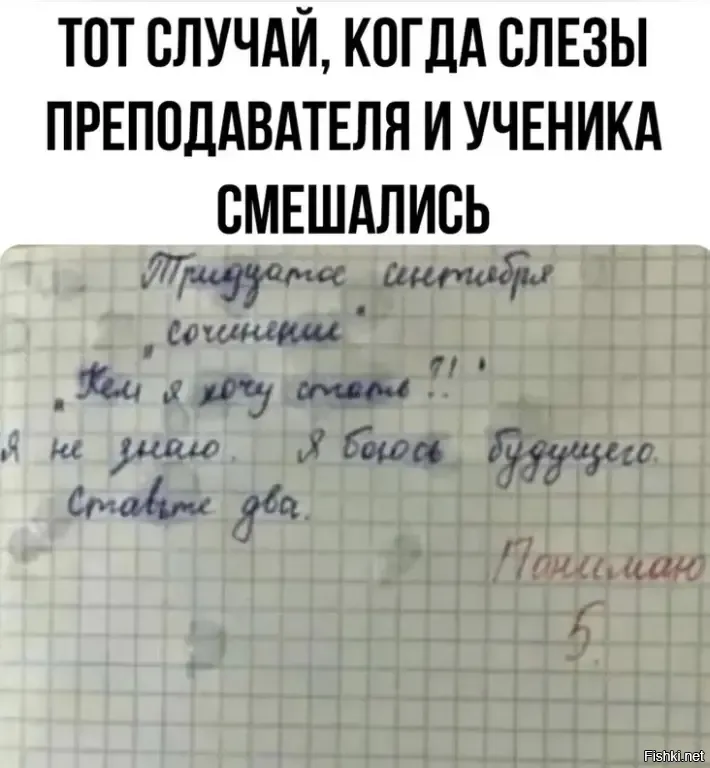 ТОТ СЛУЧАЙ, КОГДА СЛЕЗЫ
ПРЕПОДАВАТЕЛЯ И УЧЕНИКА
СМЕШАЛИСЬ
Тридцатое сентября
„сочинение"
„Кем я хочу стать?!"
Я не знаю. Я боюсь будущего.
Ставьте два.
Понимаю
5.
Fishki.net